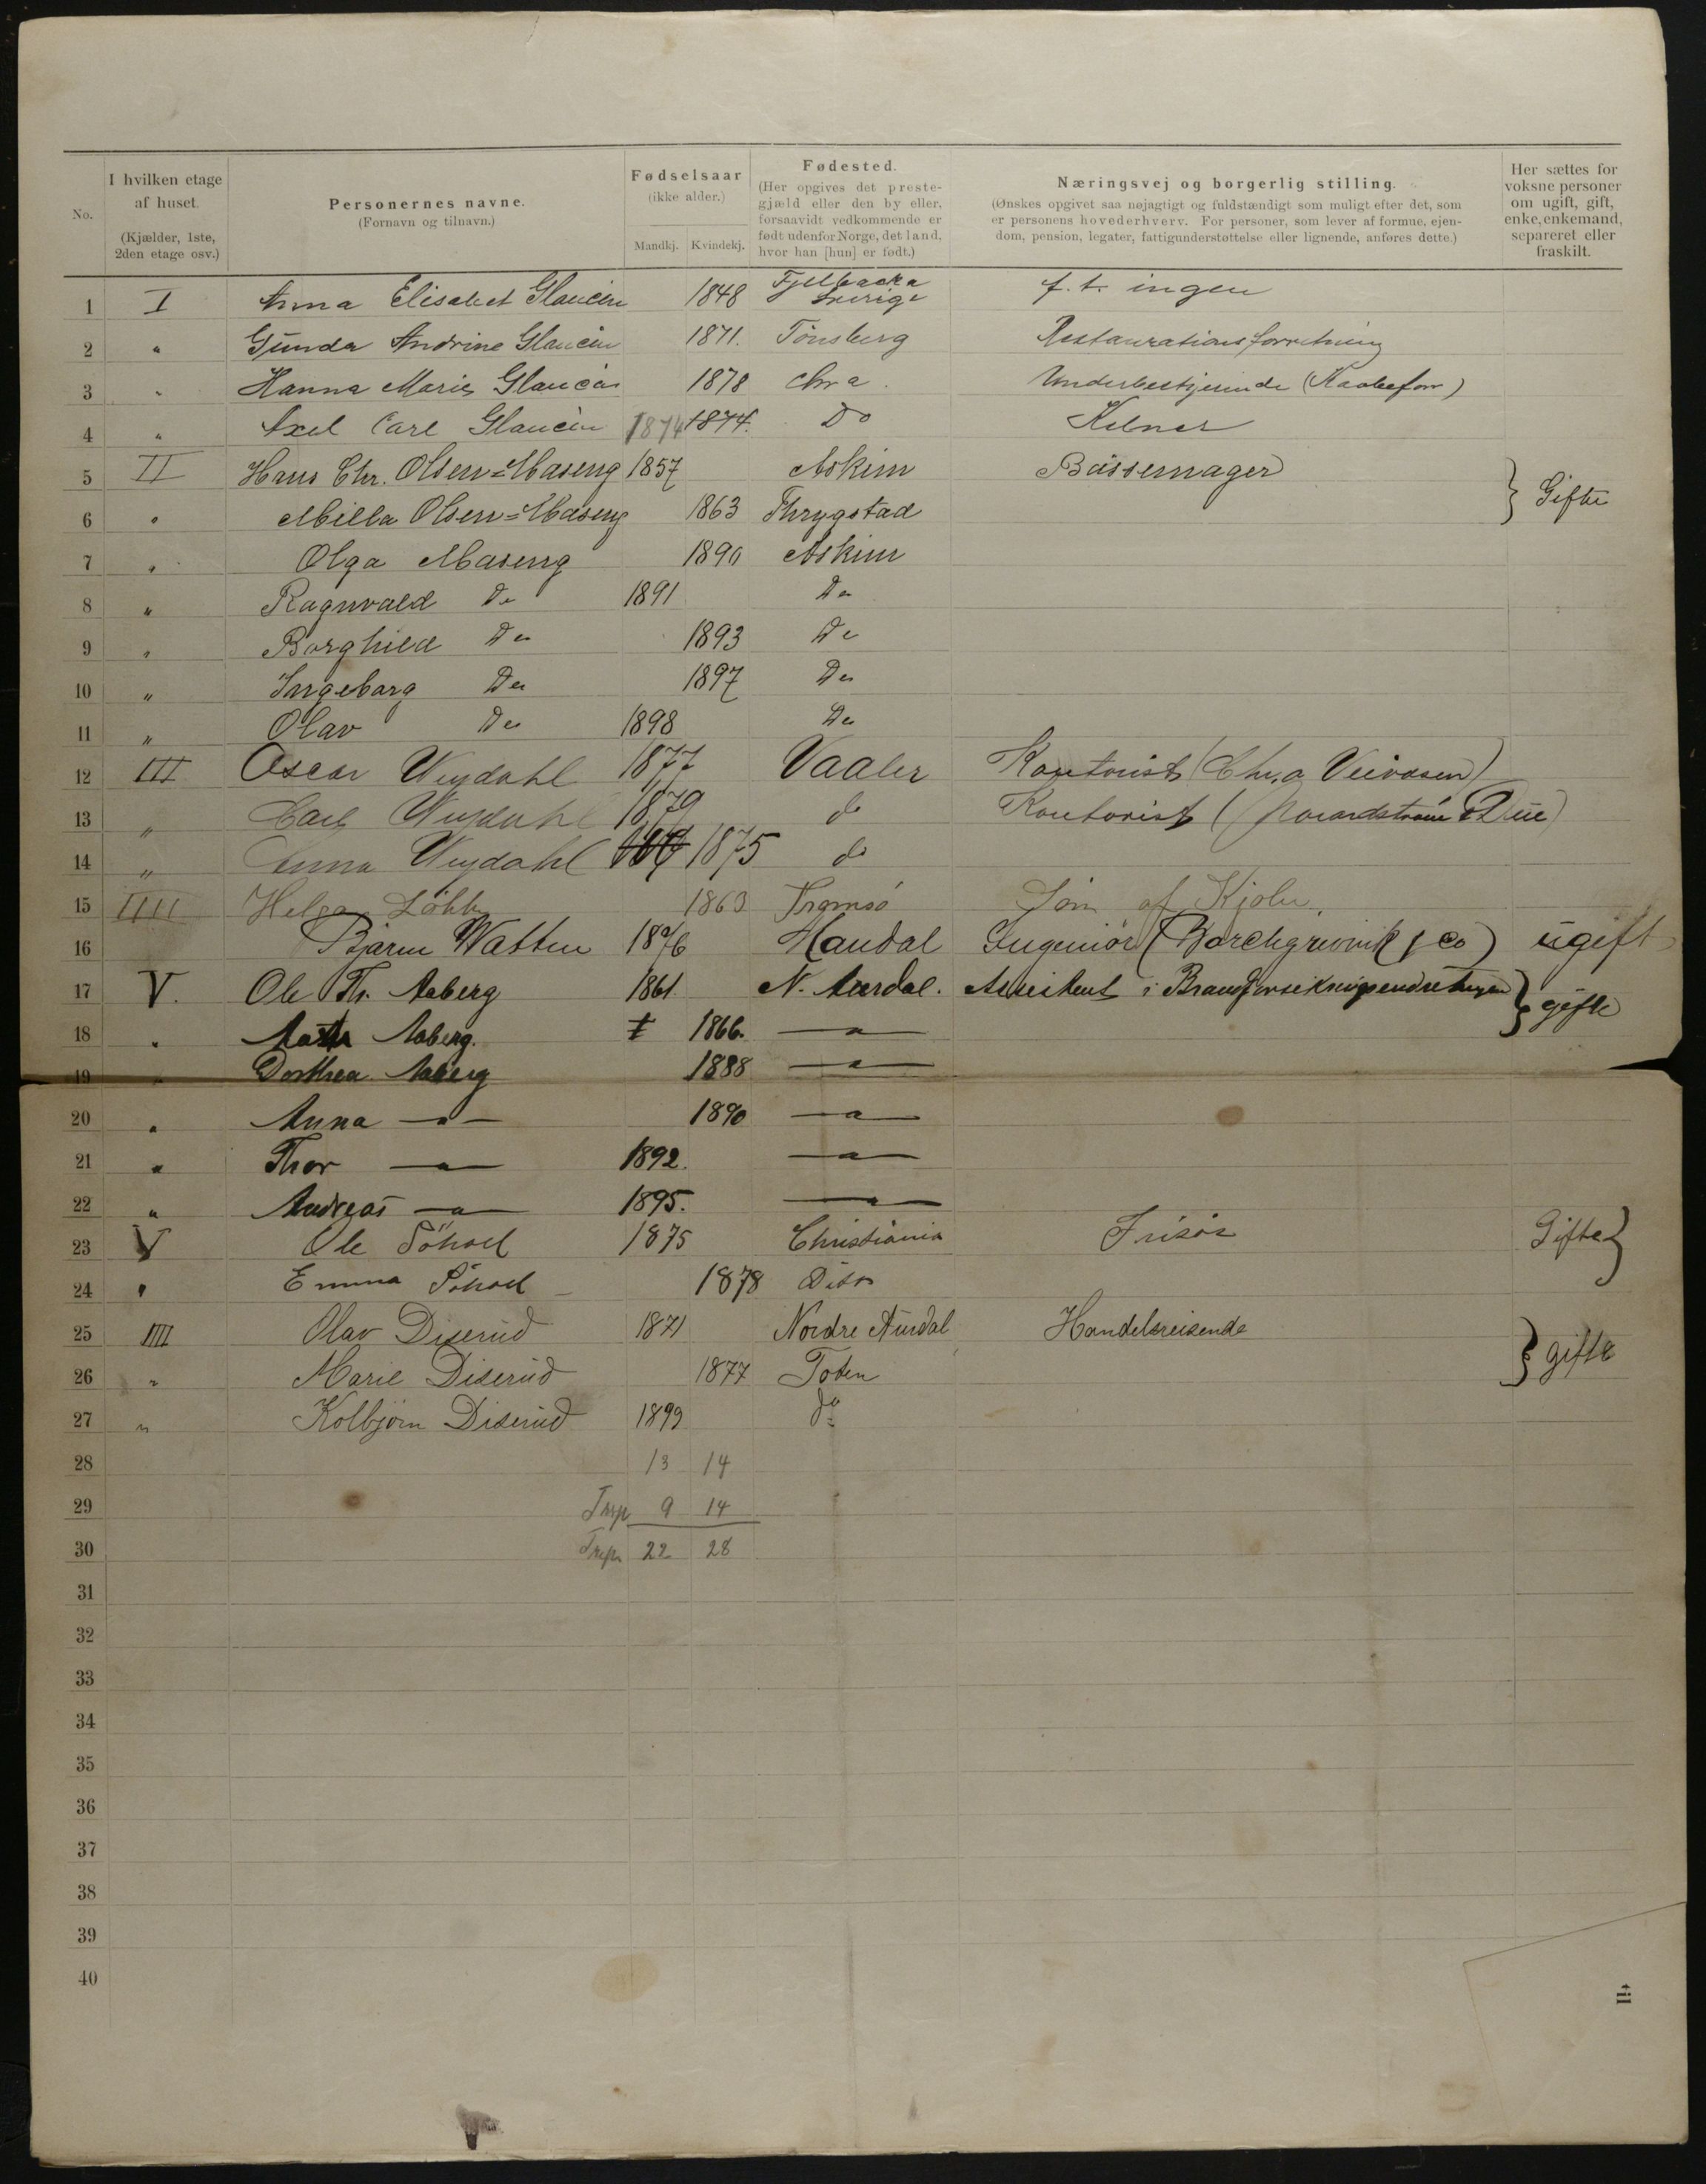 No.
I hvilken etage af huset. (Kjælder, 1ste, 2den etage osv.)
Personernes navne. (Fornavn og tilnavn.)
Fødselsaar (ikke alder.)
Mandkj. Kvindekj.
Fødested. (Her opgives det prestegjæld eller den by eller, forsaavidt vedkommende er født udenfor Norge, det land, hvor han [hun] er født.)
Næringsvej og borgerlig stilling. (Ønskes opgivet saa nøjagtigt og fuldstændigt som muligt efter det, som er personens hovederhverv. For personer, som lever af formue, ejendom, pension, legater, fattigunderstøttelse eller lignende, anføres dette.)
Her sættes for voksne personer om ugift, gift, enke, enkemand, separeret eller fraskilt.
1 I Anna Elisabet Glaucèn 1848 Fjellbacka Sverige f.t. ingen
2 " Gunda Andrine Glaucèn 1871. Tönsberg Restaurationsforretning
3 " Hanna Marie Glaucèn 1878 Chra. Underbestyerinde (Kaabeforr)
4 " Axel Carl Glaucèn 1874 1874. Do Kelner
5 II Hans Chr. Olsen=Maseng 1857 Askim Bøssemager } Gifte
6 " Milla Olsen=Maseng 1863 Thrygstad
7 " Olga Maseng 1890 Askim
8 " Ragnvald Do 1891 Do
9 " Borghild Do 1893 Do
10 " Ingeborg Do 1897 Do
11 " Olav Do 1898 Do
12 III Oscar Weydahl 1877 Vaaler Kontorist (Chr.a Veivæsen)
13 " Carl Weydahl 1879 do Kontorist ( & Due)
14 " Anna Weydahl 1875 do
15 IIII Helga 1863 Tromsö Söm af Kjoler.
16 Bjarne Watten 1876 Mandal Ingeniör (Borchgrevink & Co) ugift
17 V. Ole Th. Aaberg 1861. N. Aurdal. Assistent i Brandforsikringsindretningen } gifte
18 " Aaberg. 1866. —"—
19 " Dorthea Aaberg 1888 —"—
20 " Anna —"— 1890 —"—
21 " Thor —"— 1892. —"—
22 " Andreas —"— 1895. —"—
23 V Ole 1875 Christiania Frisör Gifte }
24 " Emma 1878 Dito
25 IIII Olav Diserud 1871 Nordre Aurdal Handelsreisende } gifte
26 " Marie Diserud 1877 Toten
27 " Kolbjörn Diserud 1899 do
28 13 14
29 Trsp 9 14
30 Trsp. 22 28
31
32
33
34
35
36
37
38
39
40